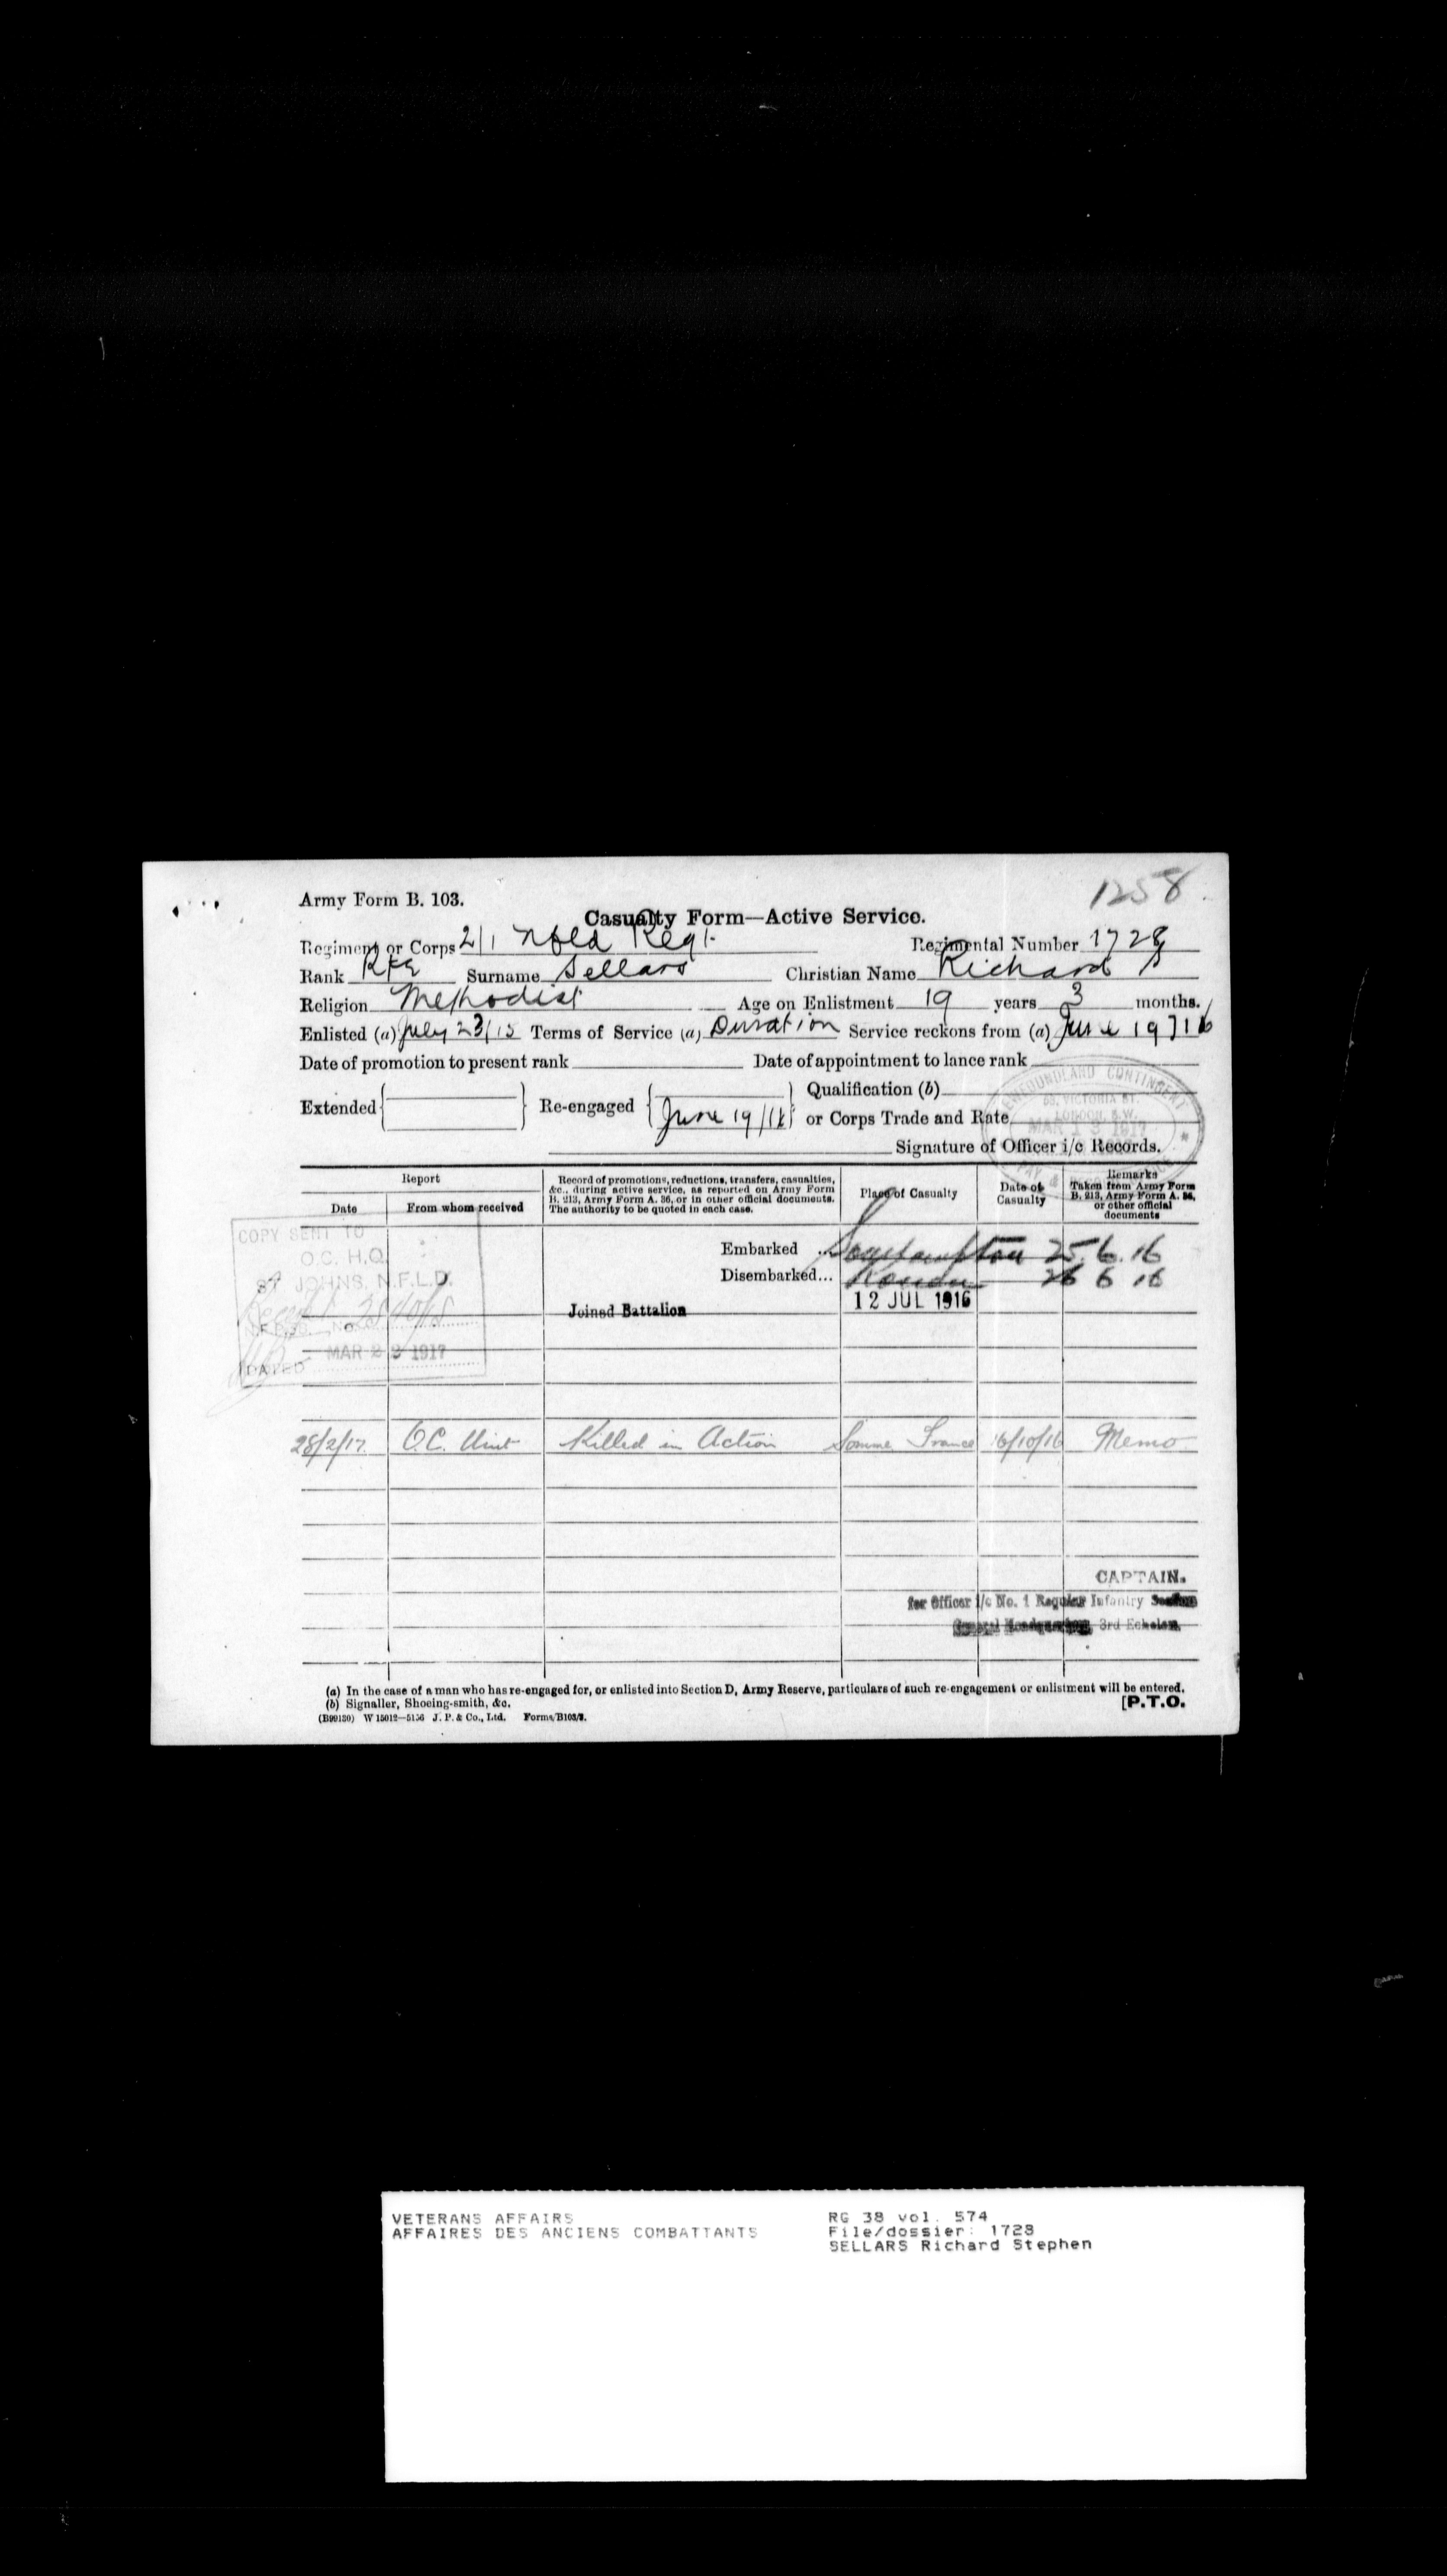 1258
Army Form B. 103.
Casualty Form—Active Service.
Regiment or Corps 2/1 Nfld Regt. Regimental Number 1728
Rank Pte Surname Sellars Christian Name Richard S
Religion Methodist Age on Enlistment 19 years 3 months.
Enlisted (a) July 23/15 Terms of Service (a) Duration Service reckons from (a) June 19/16
Date of promotion to present rank Date of appointment to lance rank
Extended Re-engaged June 19/16 Qualification (b)
or Corps Trade and Rate
Signature of Officer i/c Records.
NEWFOUNDLAND CONTINGENT
58, VICTORIA ST.
LONDON, S.W.
MAR 13 1917
PAY &
Report
Date From whom received
Record of promotions, reductions, transfers, casualties, &c., during active service, as reported on Army Form B. 213, Army Form A. 36, or in other official documents. The authority to be quoted in each case.
Place of Casualty
Date of Casualty
Remarks Taken from Army Form B. 213, Army Form A. 36, or other official documents
COPY SENT TO
O.C. H.Q.
ST JOHNS, N.F.L.D.
No.
DATED MAR 2 1917
Embarked ... Southampton 25.6.16
Disembarked... Rouen 26 6 16
Joined Battalion 12 JUL 1916
28/2/17 O.C. Unit Killed in Action Somme France 16/10/16 Memo
CAPTAIN.
for Officer i/c No. 1 Regular Infantry Section
General Headquarters, 3rd Echelon.
(a) In the case of a man who has re-engaged for, or enlisted into Section D, Army Reserve, particulars of such re-engagement or enlistment will be entered.
(b) Signaller, Shoeing-smith, &c.
[P.T.O.
(B99150) W 15012—5156 J. P. & Co., Ltd. Forms/B103/2.
VETERANS AFFAIRS RG 38 vol. 574
AFFAIRES DES ANCIENS COMBATTANTS File/dossier: 1728
SELLARS Richard Stephen